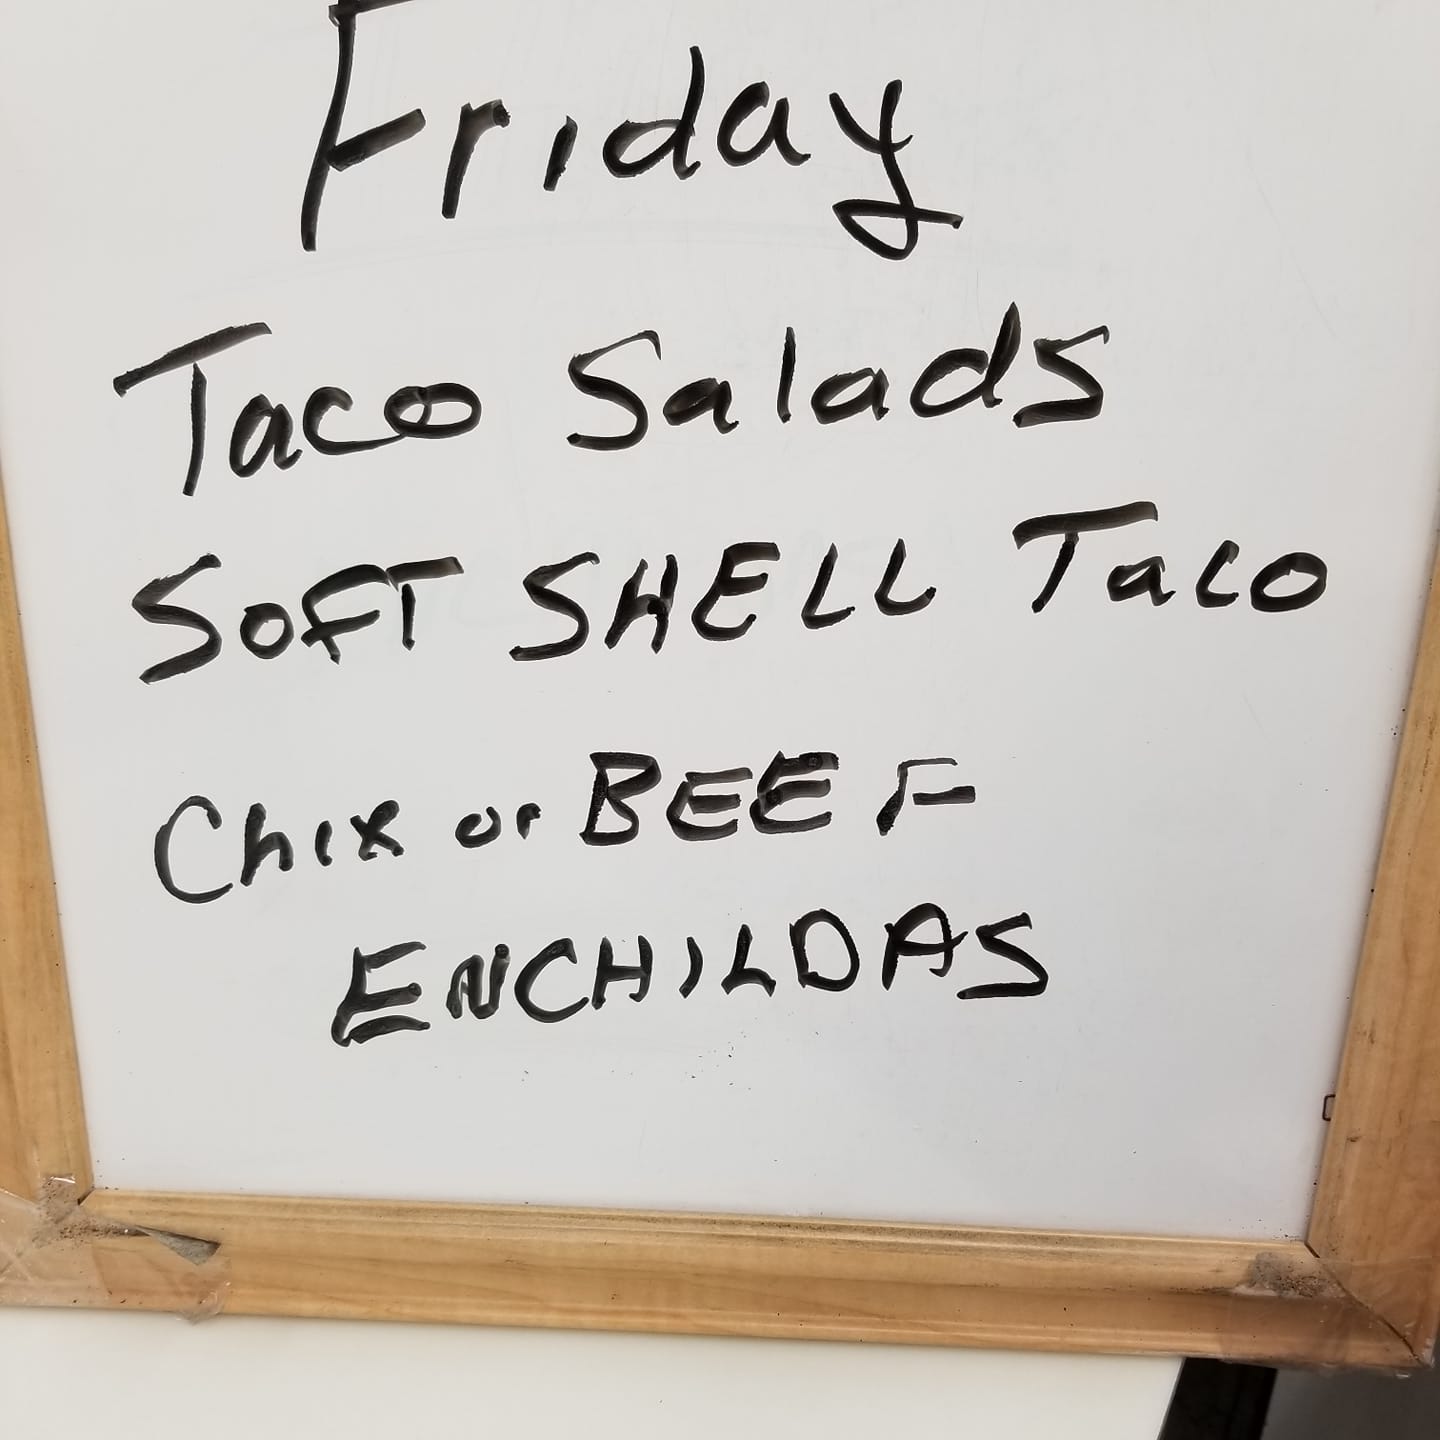 Friday
Taco Salads
SOFT SHELL Taco
Chix or BEEF
ENCHILDAS